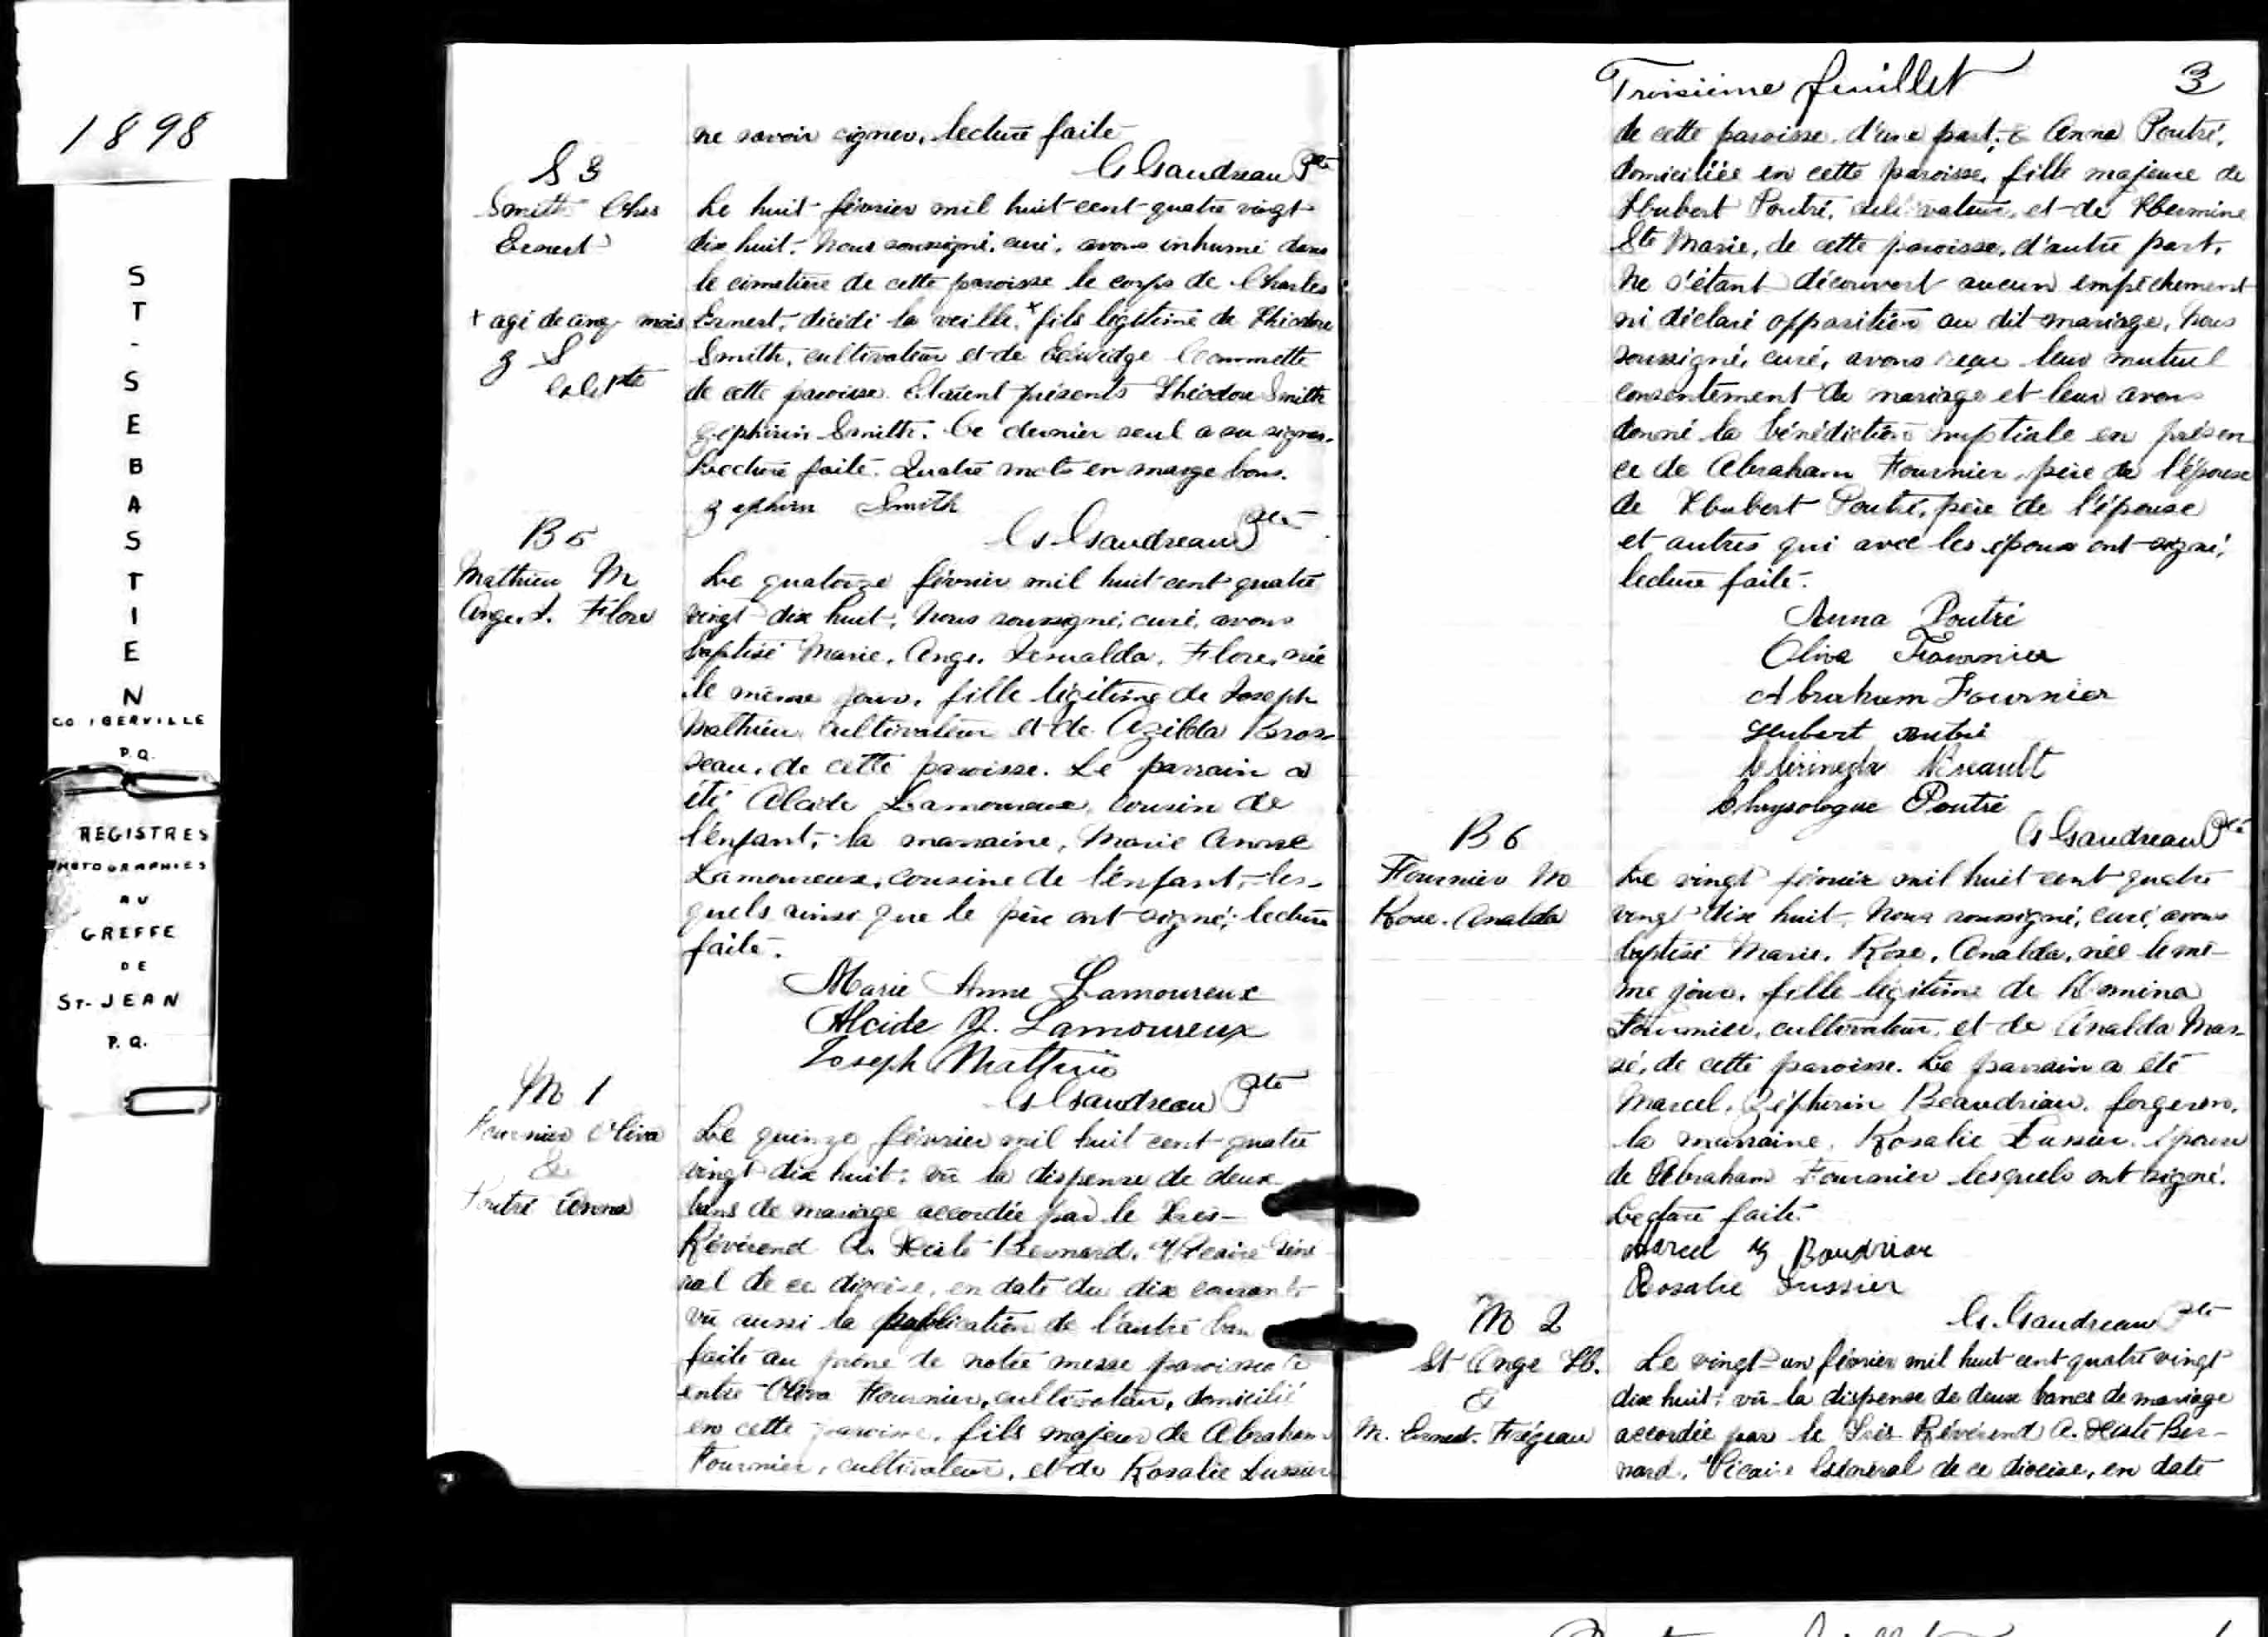 1898
ST-SEBASTIEN
CO IBERVILLE
P.Q.
REGISTRES
PHOTOGRAPHIES
AU
GREFFE
DE
ST-JEAN
P.Q.
ne savoir signer, lecture faite
G Gaudreau Ptre
S 3
Smith Chs
Ernest
+ agé de cinq mois
Z S
Le huit février mil huit cent quatre vingt
dix huit. Nous soussigné, curé, avons inhumé dans
le cimetière de cette paroisse le corps de Charles
Ernest, décédé la veille, + fils légitime de Théodore
Smith, cultivateur et de Edwidge
de cette paroisse. Etaient présents Théodore Smith
Zéphirin Smith. Ce dernier seul a su signer.
Lecture faite. Quatre mots en marge bons.
Zephirin Smith
G Gaudreau Ptre
B 5
Mathieu M
Ange. I. Flore
Le quatorze février mil huit cent quatre
vingt dix huit, Nous soussigné, curé, avons
baptisé Marie, Ange, Flore, née
le même jour, fille légitime de Joseph
Mathieu, cultivateur et de Azilda Bros-
seau, de cette paroisse. Le parrain a
été Alcide Lamoureux, cousin de
l'enfant, la marraine, Marie Anne
Lamoureux, cousine de l'enfant, les-
quels ainsi que le père ont signé; lecture
faite.
Marie Anne Lamoureux
Alcide Lamoureux
Joseph Mathieu
G Gaudreau Ptre
M 1
Fournier Oliva
&
Poutré Anna
Le quinze février mil huit cent quatre
vingt dix huit; vû la dispense de deux
bans de mariage accordée par le Très-
Révérend A. Xiste Bernard, Vicaire Géné
ral de ce diocèse, en date du dix courant
vû aussi la publication de l'autre ban
faite au prône de notre messe paroissiale
entre Oliva Fournier, cultivateur, domicilié
en cette paroisse, fils majeur de Abraham
Fournier, cultivateur, et de Rosalie Lussier
Troisième feuillet 3
de cette paroisse, d'une part; & Anna Poutré,
domiciliée en cette paroisse, fille majeure de
Hubert Poutré, cultivateur, et de Hermine
Ste Marie, de cette paroisse, d'autre part.
Ne s'étant découvert aucun empêchement
ni déclaré opposition au dit mariage, Nous
soussigné, curé, avons reçu leur mutuel
consentement de mariage et leur avons
donné la bénédiction nuptiale en présen
ce de Abraham Fournier, père de l'épouse
de Hubert Poutré, père de l'épouse
et autres qui avec les époux ont signé,
lecture faite.
Anna Poutré
Oliva Fournier
Abraham Fournier
Hubert outré
Chrysologue Poutré
G Gaudreau Ptre
B 6
Fournier M
Rose. Analda
Le vingt février mil huit cent quatre
vingt dix huit, Nous soussigné, curé, avons
baptisé Marie, Rose, Analda, née le mê-
me jour, fille légitime de Homina
Fournier, cultivateur, et de Analda Mas-
sé, de cette paroisse. Le parrain a été
Marcel, Zéphirin Beaudriau, forgeron,
la marraine, Rosalie Lussier, épouse
de Abraham Fournier lesquels ont signé.
Lecture faite.
Marcel Z Baudriau
Rosalie Lussier
G. Gaudreau Ptre
M 2
St Ange H.
&
M. Ernest. Frégeau
Le vingt-un février mil huit cent quatre vingt
dix huit; vû la dispense de deux bancs de mariage
accordée par le Très Révérend A. Xiste Ber-
nard, Vicaire Général de ce diocèse, en date